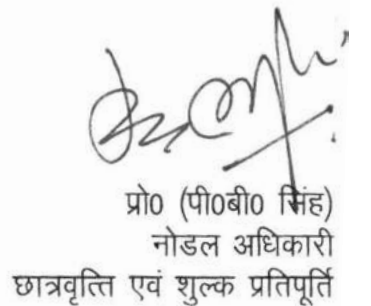 प्रो0 (पी0बी0 सिंह)
नोडल अधिकारी
छात्रवृत्ति एवं शुल्क प्रतिपूर्ति